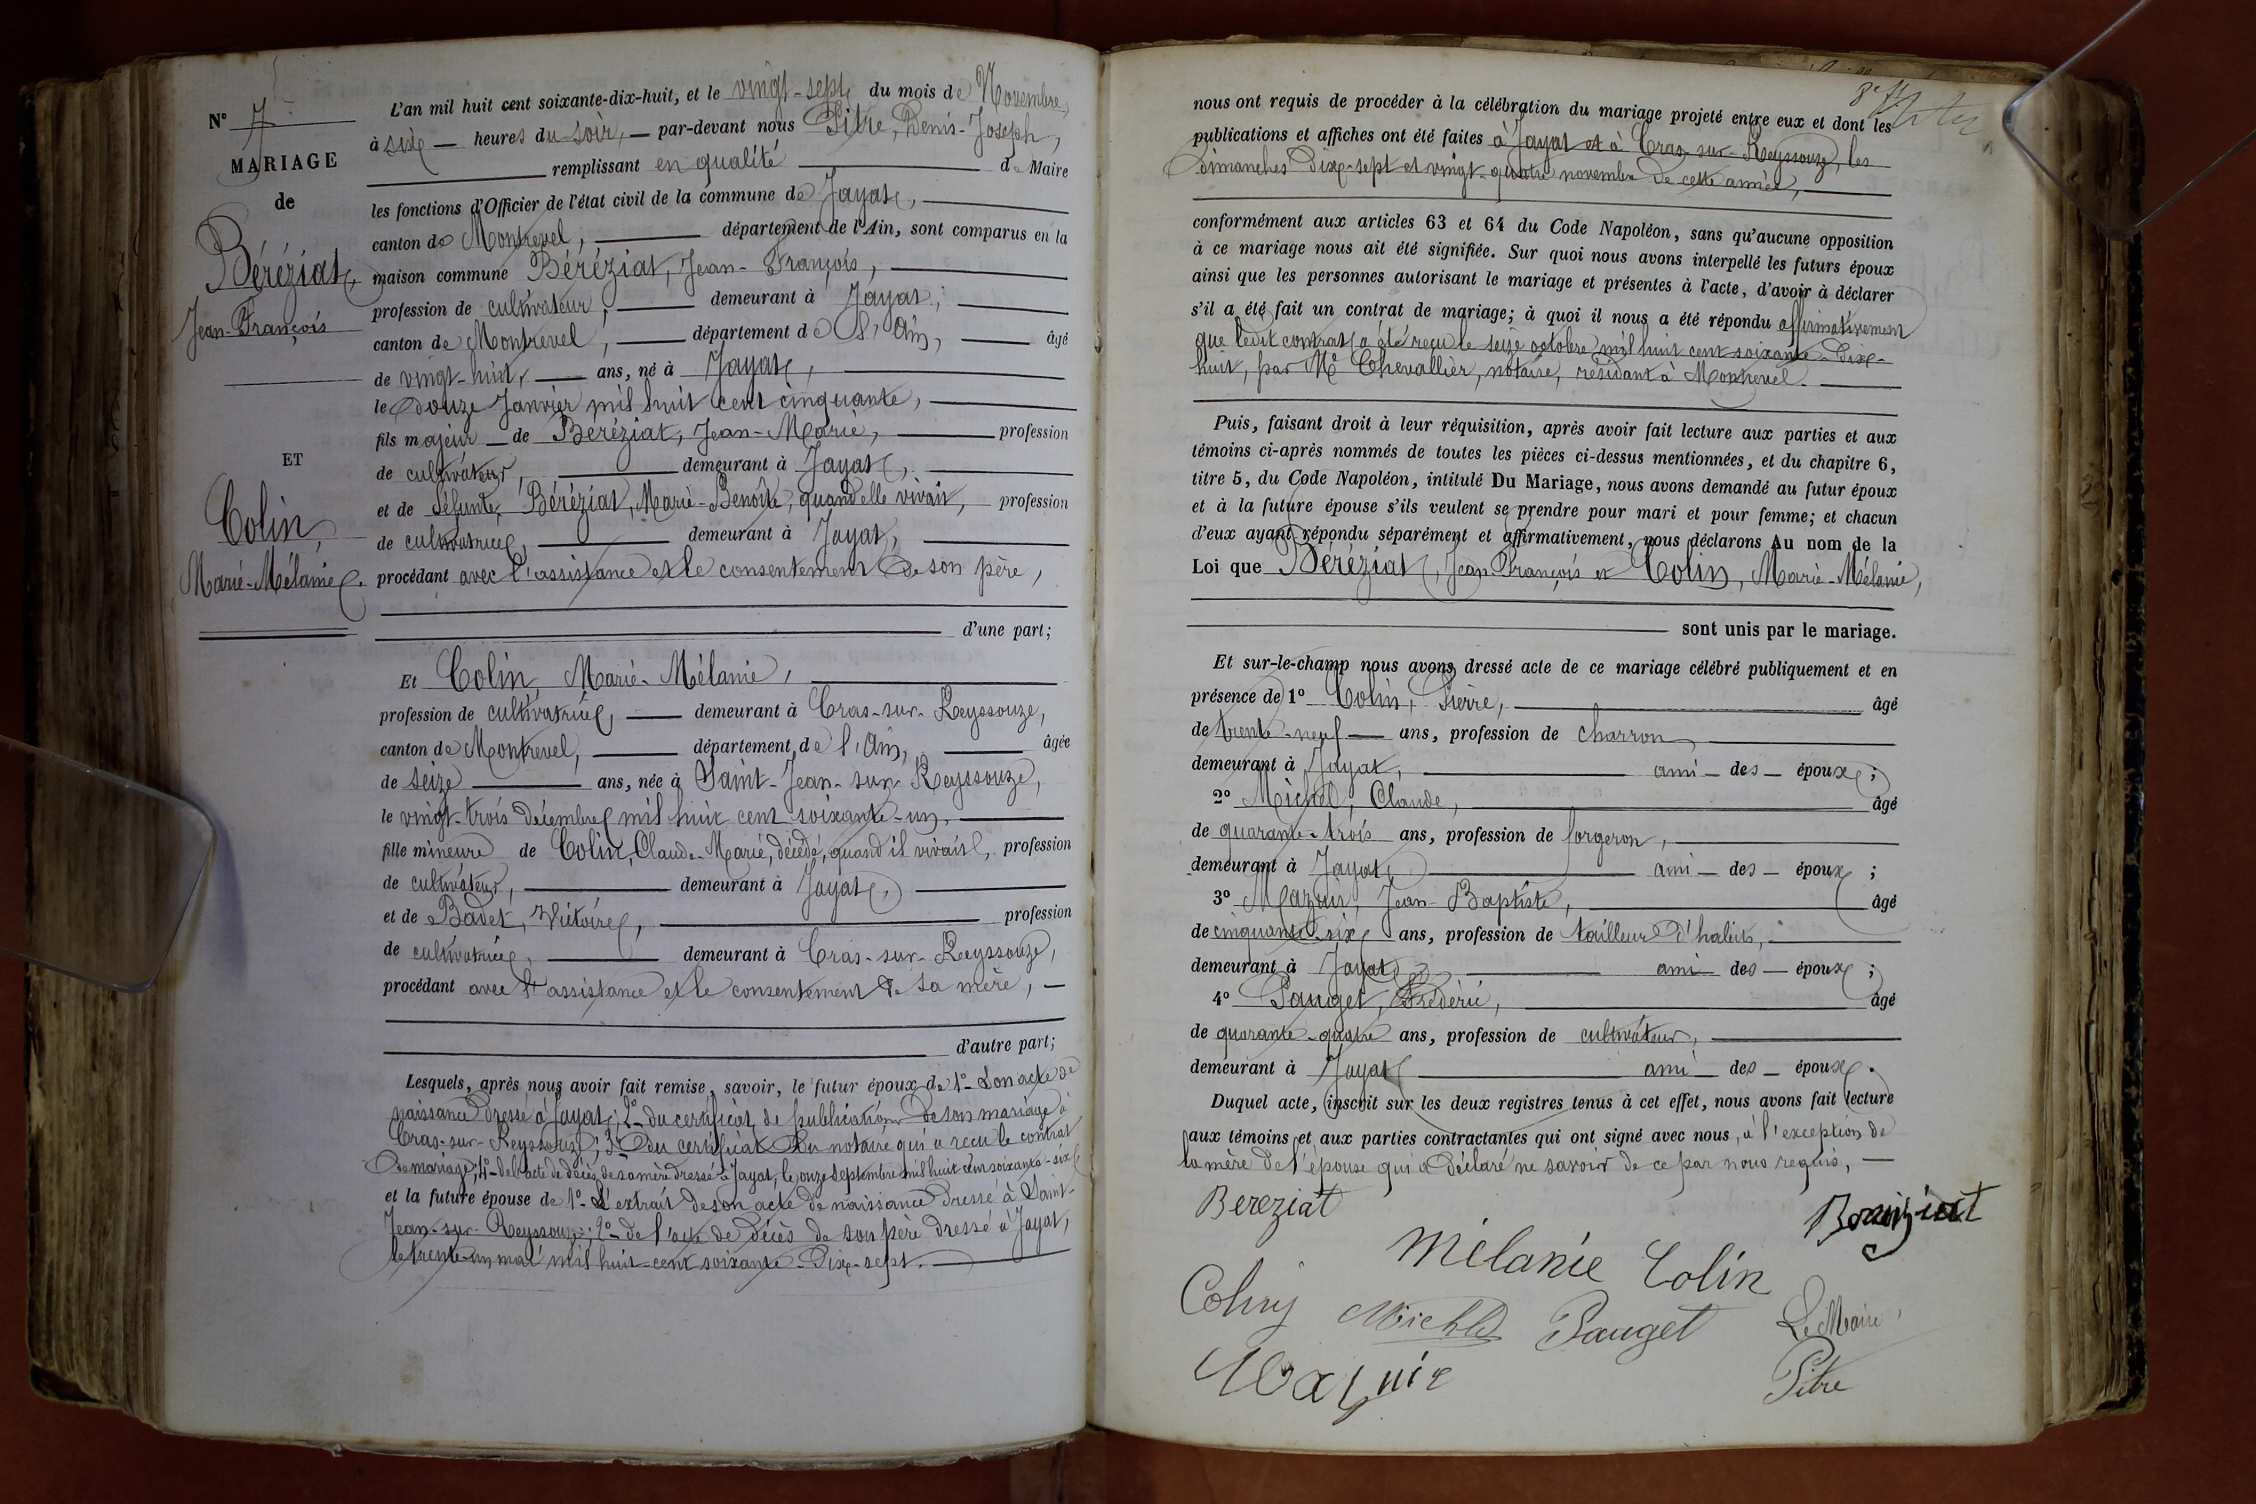 N° 7
MARIAGE
de
Béréziat,
Jean-François
ET
Colin,
Marie-Mélanie.
L'an mil huit cent soixante-dix-huit, et le vingt-sept du mois de Novembre,
à six heures du soir, par-devant nous Pitre, Denis-Joseph,
remplissant en qualité de Maire
les fonctions d'Officier de l'état civil de la commune de Jayat,
canton de Montrevel, département de l'Ain, sont comparus en la
maison commune Béréziat, Jean-François,
profession de cultivateur, demeurant à Jayat,
canton de Montrevel, département de l'Ain, âgé
de vingt-huit, ans, né à Jayat,
le douze Janvier mil huit cent cinquante,
fils majeur de Beréziat, Jean-Marie, profession
de cultivateur, demeurant à Jayat,
et de défunte, Béréziat, Marie-Benoîte, quand elle vivait, profession
de cultivatrice, demeurant à Jayat,
procédant avec l'assistance et le consentement de son père,
d'une part;
Et Colin Marie-Mélanie,
profession de cultivatrice, demeurant à Cras-sur-Reyssouze,
canton de Montrevel, département de l'Ain, âgée
de seize ans, née à Saint-Jean-sur-Reyssouze,
le vingt-trois décembre mil huit cent soixante-un,
fille mineure de Colin, Claude-Marie, décédé, quand il vivait, profession
de cultivateur, demeurant à Jayat,
et de Badet, Victoire, profession
de cultivatrice, demeurant à Cras-sur-Reyssouze,
procédant avec l'assistance et le consentement de sa mère,
d'autre part;
Lesquels, après nous avoir fait remise, savoir, le futur époux de 1°- Son acte de
naissance dressé à Jayat; 2°- du certificat de publication de son mariage à
Cras-sur-Reyssouze; 3°- du certificat du notaire qui a reçu le contrat
de mariage; 4°- de l'acte de décès de sa mère dressé à Jayat, le onze septembre mil huit cent soixante-six
et la future épouse de 1°- L'extrait de son acte de naissance dressé à Saint-
Jean-sur-Reyssouze; 2°- de l'acte de décès de son père dressé à Jayat,
le trente-un mai mil huit-cent soixante-dix-sept.
nous ont requis de procéder à la célébration du mariage projeté entre eux et dont les
publications et affiches ont été faites à Jayat et à Cras-sur-Reyssouze, les
dimanches dix-sept et vingt-quatre novembre de cette année,
conformément aux articles 63 et 64 du Code Napoléon, sans qu'aucune opposition
à ce mariage nous ait été signifiée. Sur quoi nous avons interpellé les futurs époux
ainsi que les personnes autorisant le mariage et présentes à l'acte, d'avoir à déclarer
s'il a été fait un contrat de mariage; à quoi il nous a été répondu affirmativement
que ledit contrat a été reçu le seize octobre mil huit cent soixante-dix-
huit, par Me Chevallier, notaire, résidant à Montrevel.
Puis, faisant droit à leur réquisition, après avoir fait lecture aux parties et aux
témoins ci-après nommés de toutes les pièces ci-dessus mentionnées, et du chapitre 6,
titre 5, du Code Napoléon, intitulé Du Mariage, nous avons demandé au futur époux
et à la future épouse s'ils veulent se prendre pour mari et pour femme; et chacun
d'eux ayant répondu séparément et affirmativement, nous déclarons Au nom de la
Loi que Béréziat, Jean-François et Colin, Marie-Mélanie,
sont unis par le mariage.
Et sur-le-champ nous avons dressé acte de ce mariage célébré publiquement et en
présence de 1° Colin, Pierre, âgé
de trente-neuf ans, profession de charron,
demeurant à Jayat, ami des époux;
2° Michel, Claude, âgé
de quarante-trois ans, profession de forgeron,
demeurant à Jayat, ami des époux;
3° Mazuir, Jean-Baptiste, âgé
de cinquante-six ans, profession de tailleur d'habits,
demeurant à Jayat, ami des époux;
4° Pauget, Frédéric, âgé
de quarante-quatre ans, profession de cultivateur,
demeurant à Jayat ami des époux.
Duquel acte, inscrit sur les deux registres tenus à cet effet, nous avons fait lecture
aux témoins et aux parties contractantes qui ont signé avec nous, à l'exception de
la mère de l'épouse qui a déclaré ne savoir de ce par nous requis,
Bereziat
Bereziat
Mélanie Colin
Colin Michel Pauget Le Maire,
Mazuir Pitre